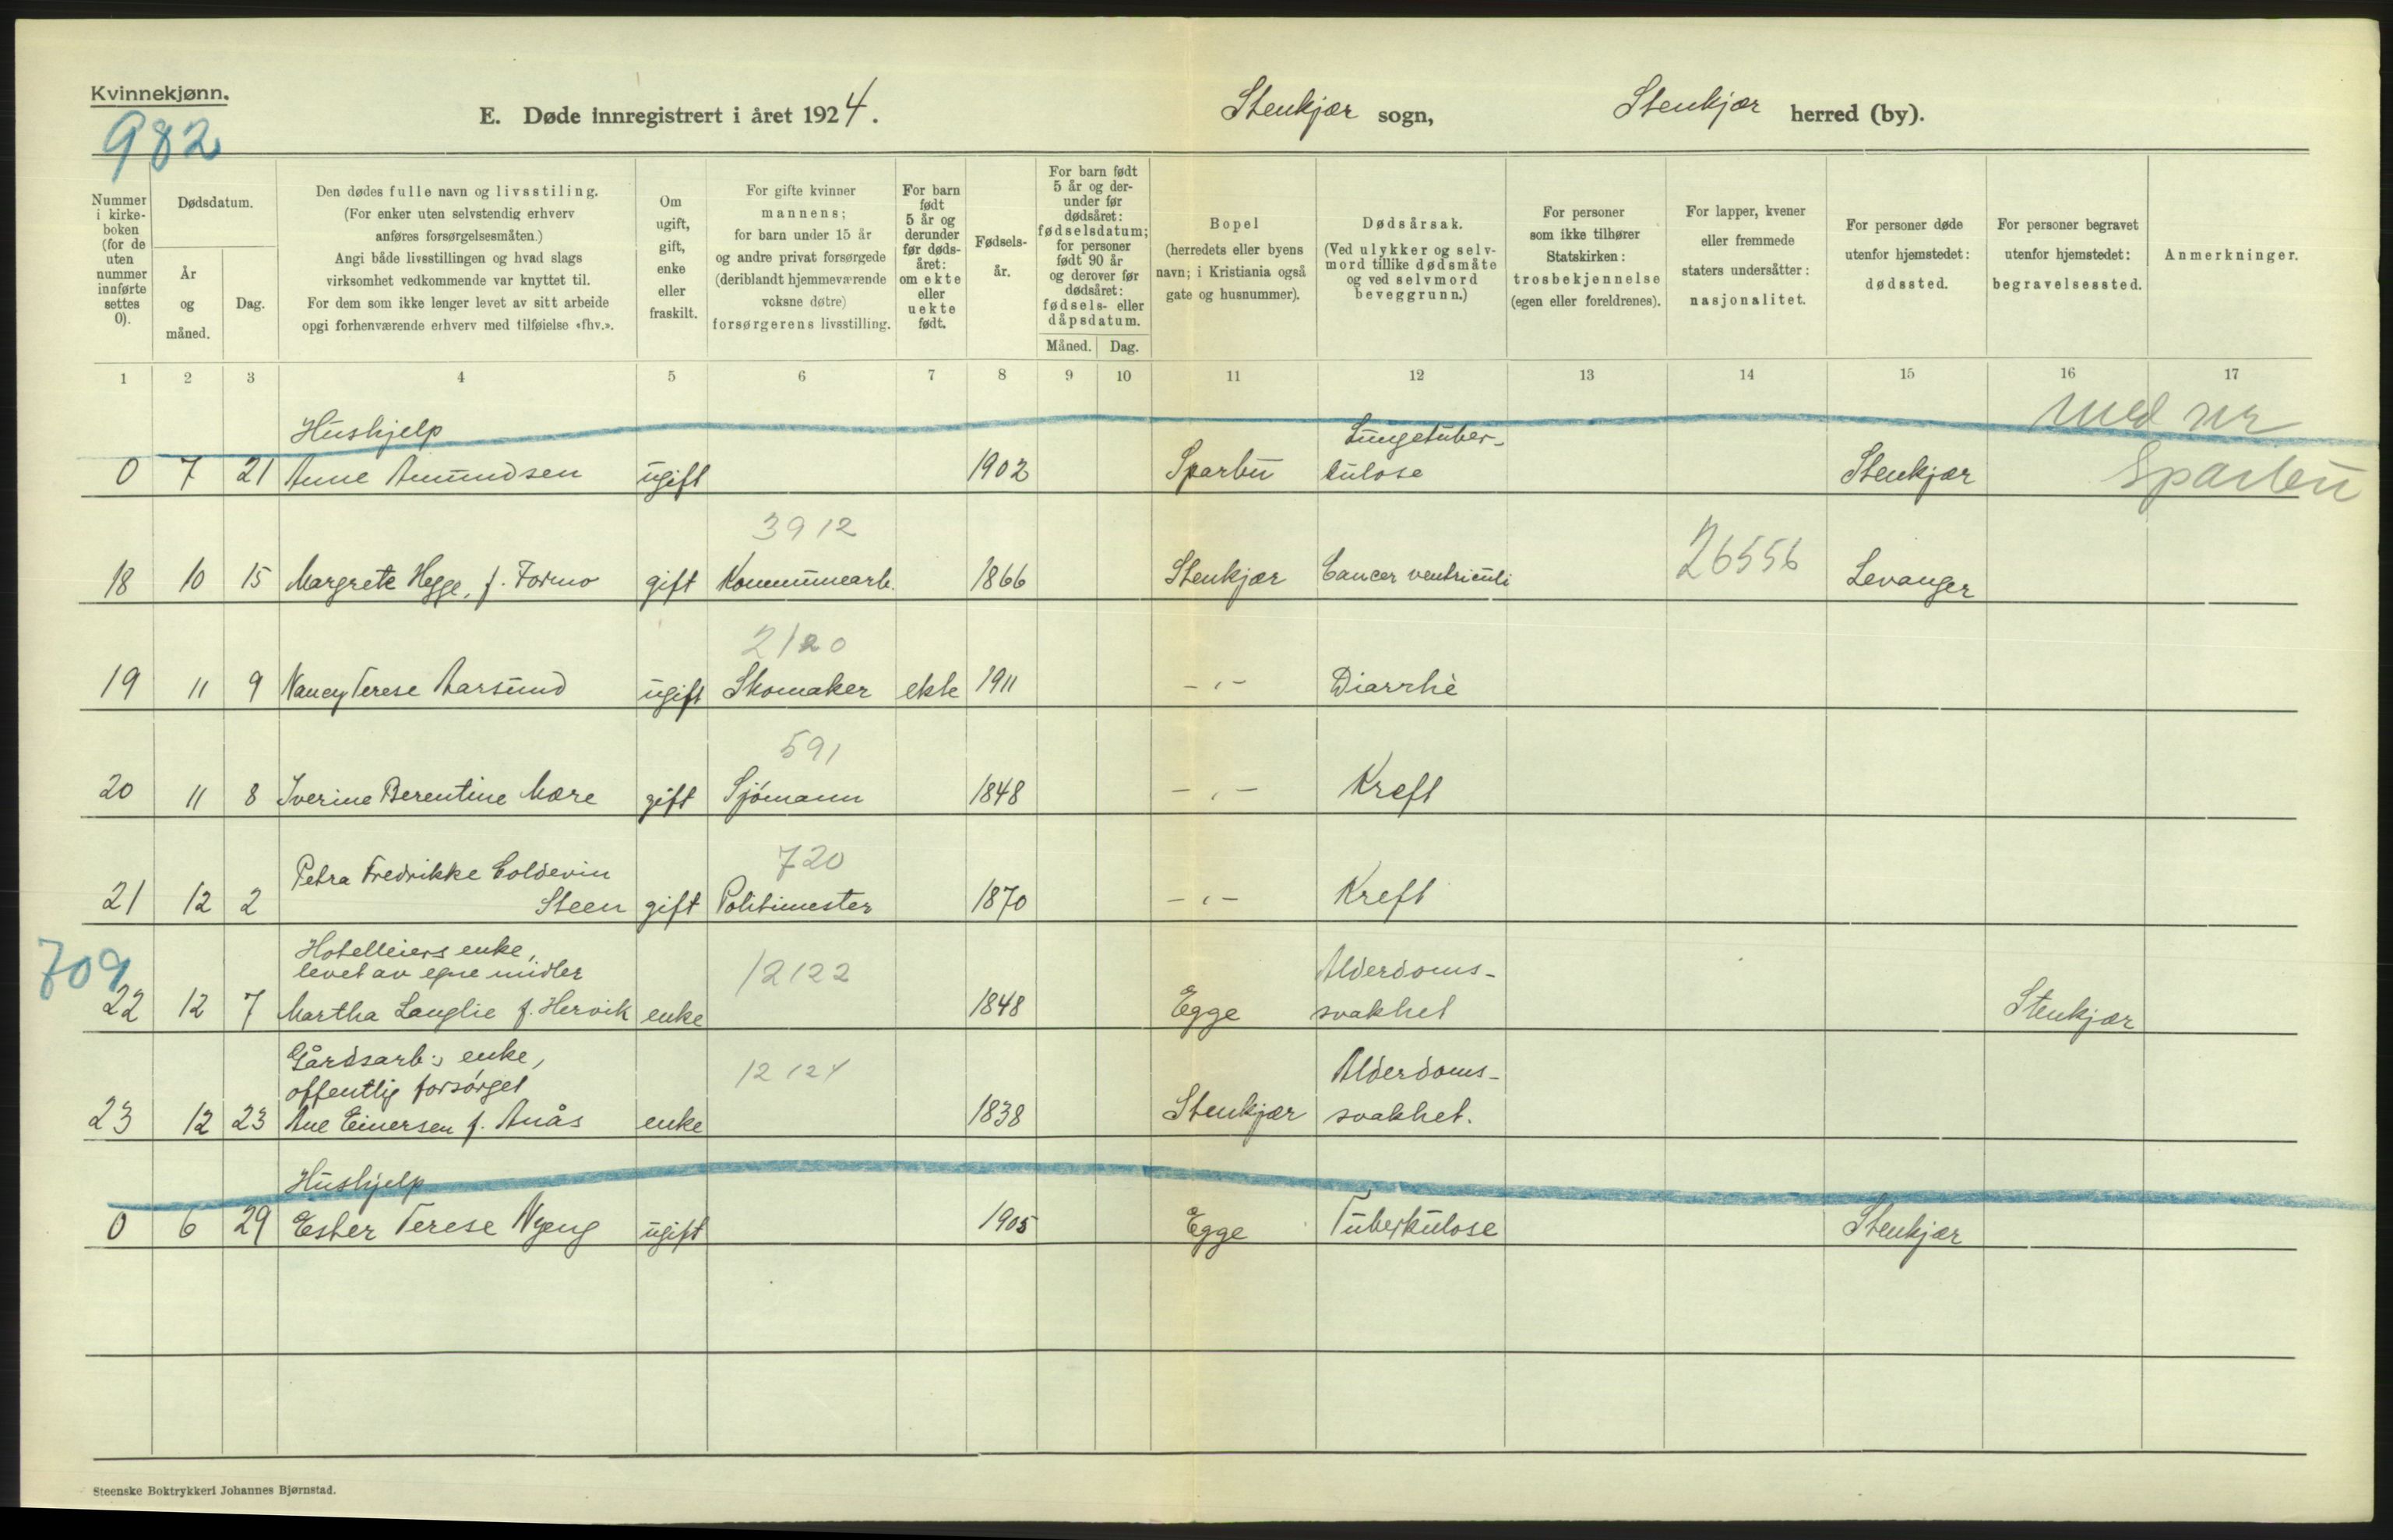 Kvinnekjønn.
982
E. Døde innregistrert i året 1924.
Stenkjær sogn,
Stenkjær herred (by).
Nummer i kirke-boken (for de uten nummer innførte settes 0).
Dødsdatum.
År og måned.
Dag.
Den dødes fulle navn og livsstiling.
(For enker uten selvstendig erhverv
anføres forsørgelsesmåten.)
Angi både livsstillingen og hvad slags
virksomhet vedkommende var knyttet til.
For dem som ikke lenger levet av sitt arbeide
opgi forhenværende erhverv med tilføielse «fhv.».
Om ugift, gift, enke eller fraskilt.
For gifte kvinner
mannens;
for barn under 15 år
og andre privat forsørgede
(deriblandt hjemmeværende
voksne døtre)
forsørgerens livsstilling.
For barn født 5 år og derunder før døds-året: om ekte eller uekte født.
Fødsels-år.
For barn født
5 år og der-
under før
dødsåret:
fødselsdatum;
for personer
født 90 år
og derover før
dødsåret:
fødsels- eller
dåpsdatum.
Måned. Dag.
Bopel
(herredets eller byens
navn; i Kristiania også
gate og husnummer).
Dødsårsak.
(Ved ulykker og selv-
mord tillike dødsmåte
og ved selvmord
beveggrunn.)
For personer
som ikke tilhører
Statskirken:
trosbekjennelse
(egen eller foreldrenes).
For lapper, kvener
eller fremmede
staters undersåtter:
nasjonalitet.
For personer døde
utenfor hjemstedet:
dødssted.
For personer begravet
utenfor hjemstedet:
begravelsessted.
Anmerkninger.
1 2 3 4 5 6 7 8 9 10 11 12 13 14 15 16 17
Hushjelp Lungetuber- med nr
0 7 21 Anne Amundsen ugift 1902 Sparbu kulose Stenkjær Sparbu
3912 26556
18 10 15 Margrete Hegge, f. Formo gift Kommunearb. 1866 Stenkjær Cancer ventriculi Levanger
2120
19 11 9 Nancy Terese Aarsund ugift Skomaker ekte 1911 -,- Diarrhè
591
20 11 8 Iverine Berentine Mære gift Sjømann 1848 -,- Kreft
Petra Fredrikke Coldevin 720
21 12 2 Steen gift Politimester 1870 -,- Kreft
709
Hotelleiers enke,
levet av egne midler 12122 Alderdoms-
22 12 7 Martha Langlie f. Hervik enke 1848 Egge svakhet Stenkjær
Gårdsarb:s enke,
offentlig forsørget 12124 Alderdoms-
23 12 23 Ane Einersen f. Anås enke 1838 Stenkjær svakhet.
Hushjelp
0 6 29 Ester Terese Nyeng ugift 1905 Egge Tuberkulose Stenkjær
Steenske Boktrykkeri Johannes Bjørnstad.